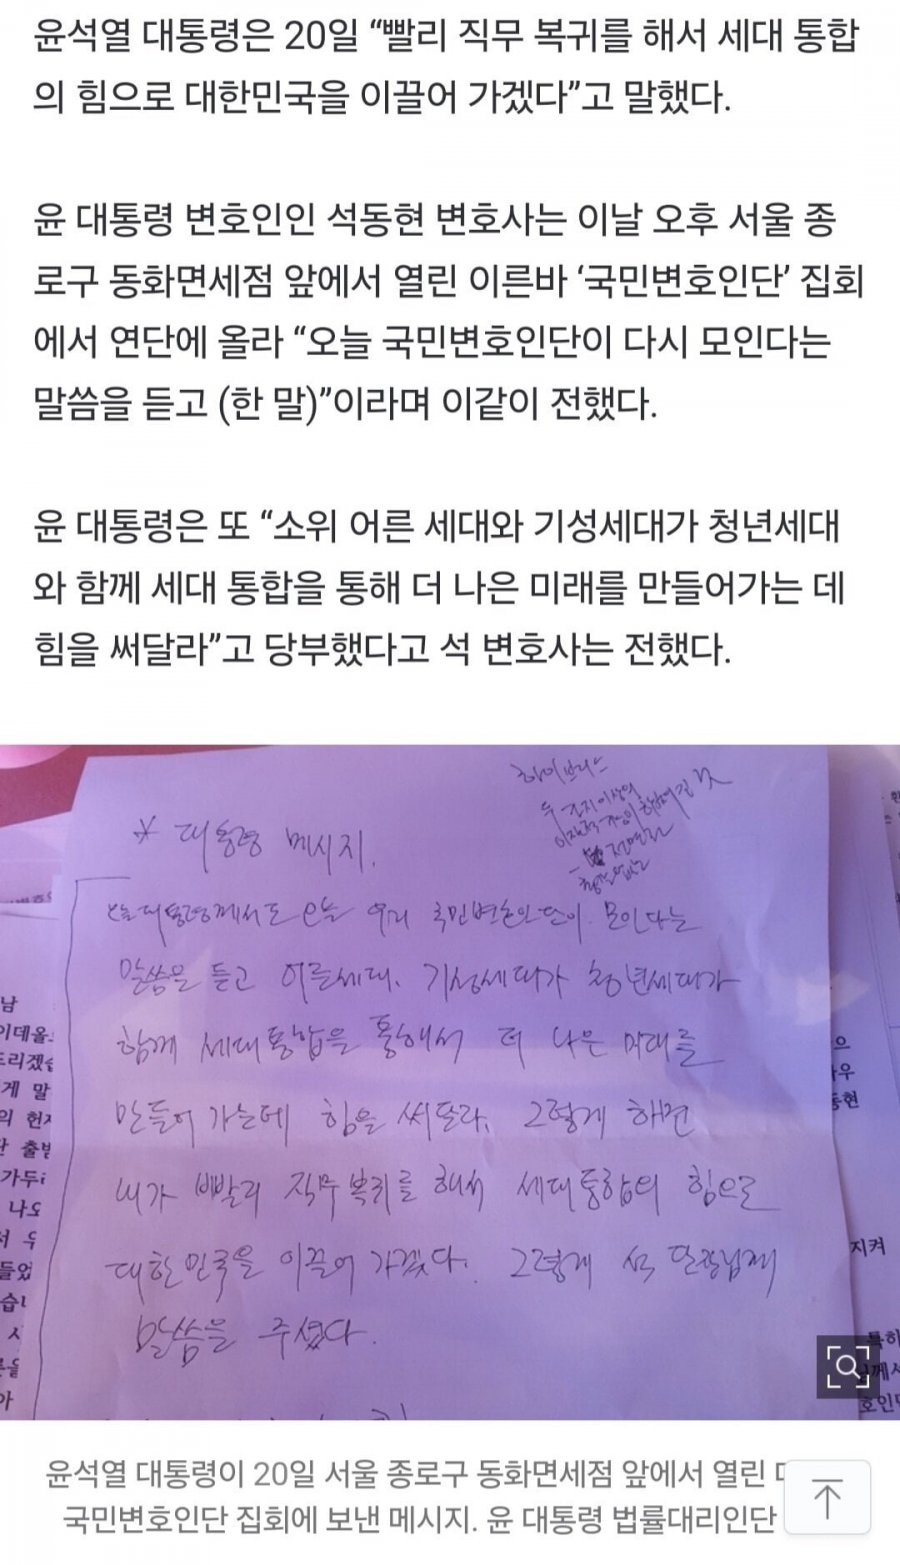 윤석열 대통령은 20일 “빨리 직무 복귀를 해서 세대 통합
의 힘으로 대한민국을 이끌어 가겠다”고 말했다.
윤 대통령 변호인인 석동현 변호사는 이날 오후 서울 종
로구 동화면세점 앞에서 열린 이른바 ‘국민변호인단’ 집회
에서 연단에 올라 “오늘 국민변호인단이 다시 모인다는
말씀을 듣고 (한 말)”이라며 이같이 전했다.
윤 대통령은 또 “소위 어른 세대와 기성세대가 청년세대
와 함께 세대 통합을 통해 더 나은 미래를 만들어가는 데
힘을 써달라”고 당부했다고 석 변호사는 전했다.
하이브리스
* 대통령 메시지.
오늘 대통령께서도 오늘 우리 국민변호인단이 모인다는
말씀을 듣고 어른세대, 기성세대가 청년세대가
함께 세대통합을 통해서 더 나은 미래를
만들어 가는데 힘을 써달라. 그렇게 하면
내가 빨리 직무복귀를 해서 세대통합의 힘으로
대한민국을 이끌어 가겠다. 그렇게 석 단장님께
말씀을 주셨다.
남
게 말
나오
지켜
윤석열 대통령이 20일 서울 종로구 동화면세점 앞에서 열린
국민변호인단 집회에 보낸 메시지. 윤 대통령 법률대리인단